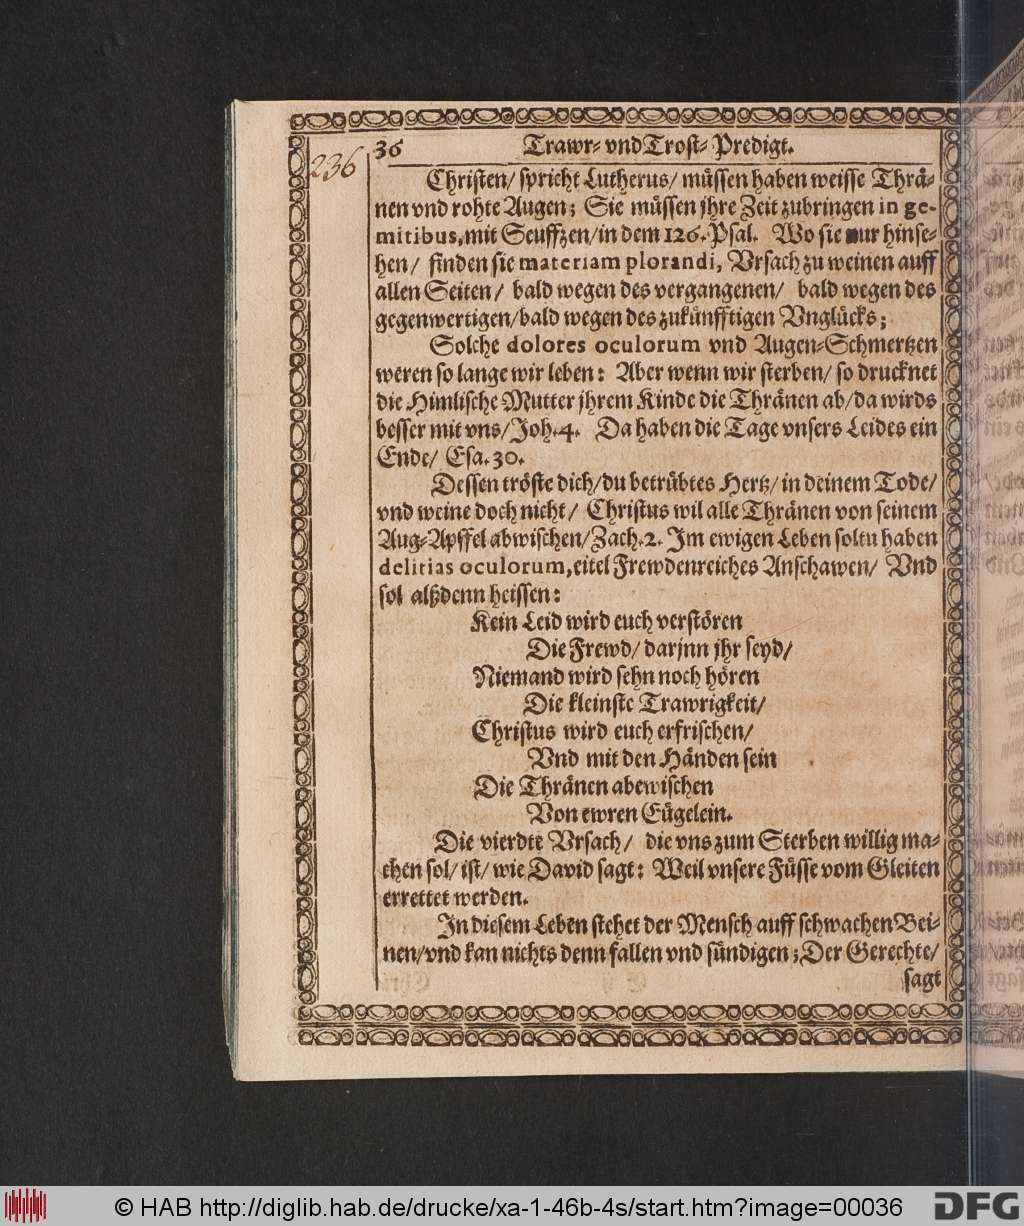 236
36 Trawr- vnd Trost- Predigt.
Christen/ spricht Lutherus/ müssen haben weisse Thrä-
nen vnd rohte Augen; Sie müssen jhre Zeit zubringen in ge-
mitibus, mit Seuffzen/ in dem 126. Psal. Wo sie nur hinse-
hen/ finden sie materiam plorandi, Vrsach zu weinen auff
allen Seiten/ bald wegen des vergangenen/ bald wegen des
gegenwertigen/ bald wegen des zukünfftigen Vnglücks;
Solche dolores oculorum vnd Augen-Schmertzen
weren so lange wir leben: Aber wenn wir sterben/ so drucknet
die Himlische Mutter jhrem Kinde die Thränen ab/ da wirds
besser mit vns/ Joh. 4. Da haben die Tage vnsers Leides ein
Ende/ Esa. 30.
Dessen tröste dich/ du betrübtes Hertz/ in deinem Tode/
vnd weine doch nicht/ Christus wil alle Thränen von seinem
Aug-Apffel abwischen/ Zach. 2. Im ewigen Leben soltu haben
delitias oculorum, eitel Frewdenreiches Anschawen/ Vnd
sol alßdenn heissen:
Kein Leid wird euch verstören
Die Frewd/ darjnn jhr seyd/
Niemand wird sehn noch hören
Die kleinste Trawrigkeit/
Christus wird euch erfrischen/
Vnd mit den Händen sein
Die Thränen abewischen
Von ewren Eügelein.
Die vierdte Vrsach/ die vns zum Sterben willig ma-
chen sol/ ist/ wie David sagt: Weil vnsere Füsse vom Gleiten
errettet werden.
In diesem Leben stehet der Mensch auff schwachen Bei-
nen/ vnd kan nichts denn fallen vnd sündigen; Der Gerechte/
sagt
© HAB http://diglib.hab.de/drucke/xa-1-46b-4s/start.htm?image=00036 DFG